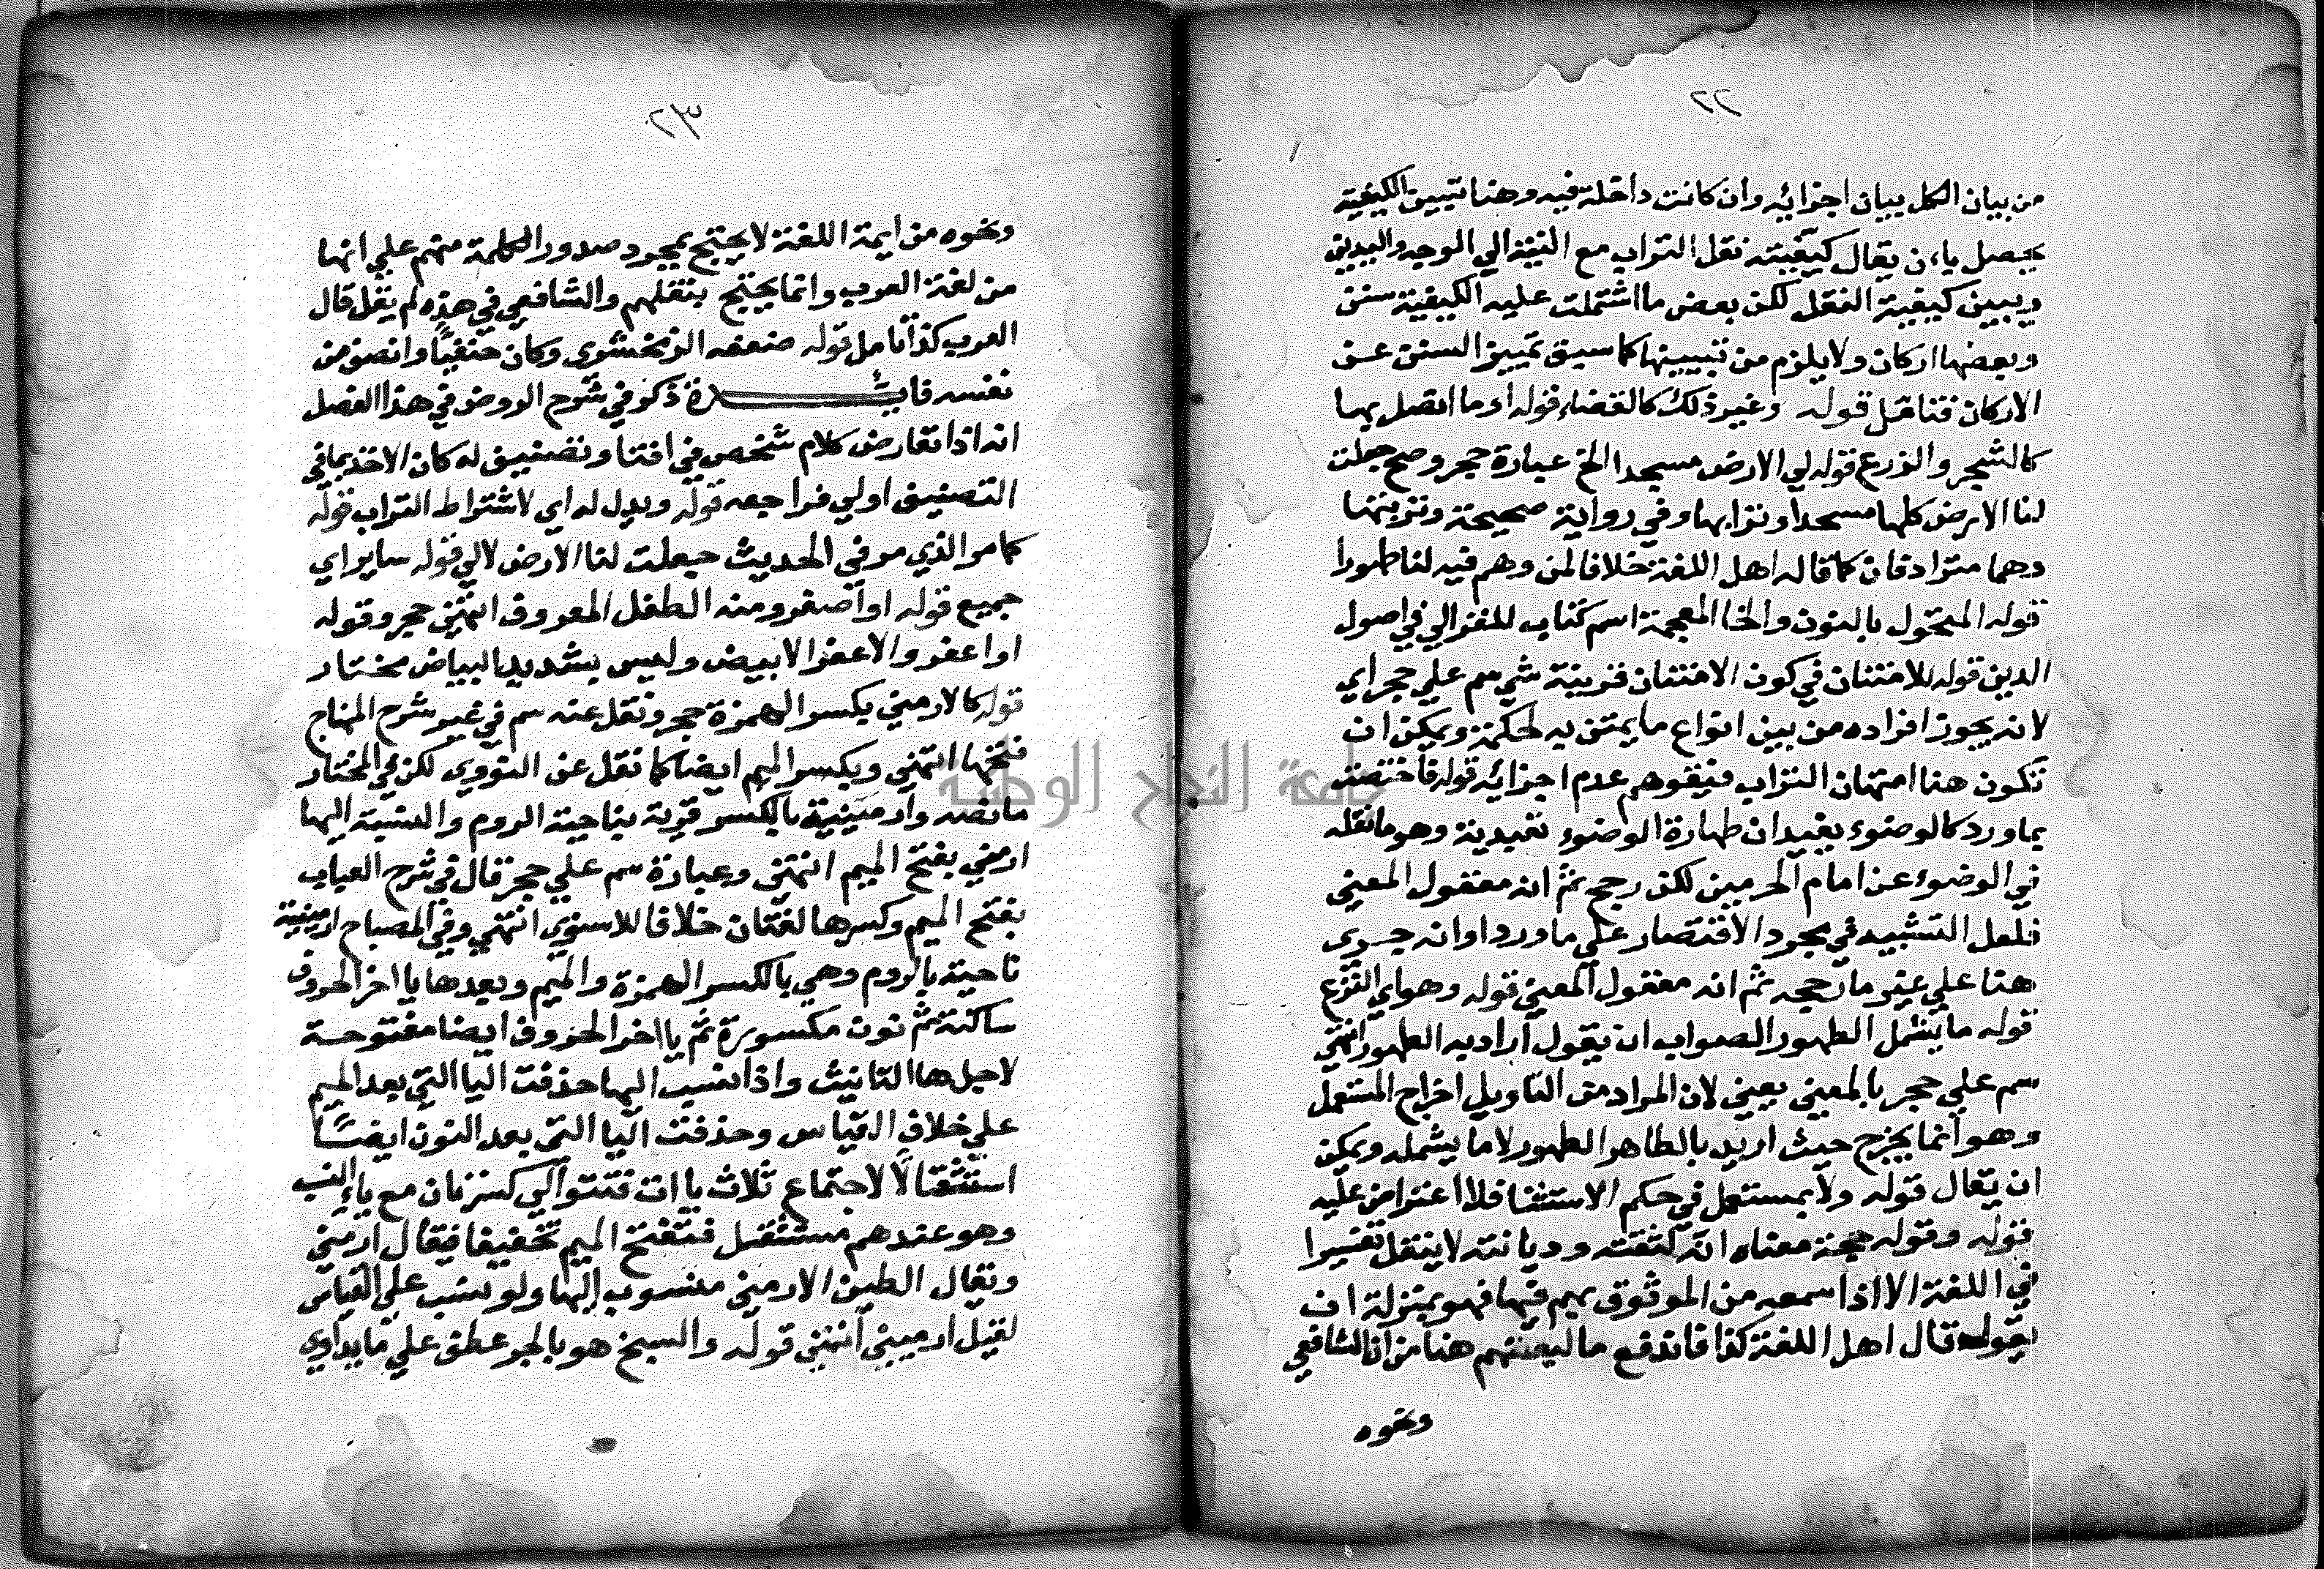 ٢٢
من بيان الكل ببيان اجزائه وان كانت داخلة فيه وهنا تبيين الكيفية
يحصل بان يقال كيفيته نقل التراب مع النية الي الوجه واليدين
ويبين كيفية النقل لكن بعض ما اشتملت عليه الكيفية سنن
وبعضها اركان ولا يلزم من تبيينها كما سبق تمييز السنن عن
الاركان فتامل قوله وغير ذلك كالقضاء قوله او ما اتصل بها
كالشجر والزرع قوله لي الارض مسجدا الخ عبارة حجر وصح جعلت
لنا الارض كلها مسجدا وترابها وفي رواية صحيحة وتربتها
وهما مترادفان كما قاله اهل اللغة خلافا لمن وهم فيه لنا طهورا
قوله المنخول بالنون والخا المعجمة اسم كتاب للغزالي في اصول
الدين قوله للامتنان في كون الامتنان قرينة شي سم علي حجر اي
لانه يجوز افراده من بين انواع ما يمتن به لحكمة ويمكن ان
تكون هنا امتهان التراب فيتوهم عدم اجزائه قوله فاختصت
بما ورد كالوضوء يفيد ان طهارة الوضوء تعبدية وهو ما نقله
في الوضوء عن امام الحرمين لكن رجح ثم انه معقول المعني
فلعل التشبيه في مجرد الاقتصار علي ما ورد او انه جري
هنا علي غير ما رجحه ثم انه معقول المعني قوله وهو اي النزع
قوله ما يشمل الطهور الصواب ان يقول اراد به الطهور انتهي
سم علي حجر بالمعني يعني لان المراد من التاويل اخراج المستعمل
وهو انما يخرج حيث اريد بالطاهر الطهور لا ما يشمله ويمكن
ان يقال قوله ولا بمستعمل في حكم الاستثنا فلا اعتراض عليه
قوله وقوله حجة معناه انه لثقته وديانته لا ينقل تفسيرا
في اللغة الا اذا سمعه من الموثوق بهم فيها فهو بمنزلة ان
يقول قال اهل اللغة كذا فاندفع ما لبعضهم هنا من ان الشافعي
ونحوه
٢٣
ونحوه من ايمة اللغة لا يحتج بمجرد صدور الكلمة منهم علي انها
من لغة العرب وانما يحتج بنقلهم والشافعي في هذه لم يقل قال
العرب كذا تامل قوله ضعفه الزمخشري وكان حنفيا وانصف من
نفسه فايدة ذكر في شرح الروض في هذا الفصل
انه اذا تعارض كلام شخص في افتا وتصنيف له كان الاخذ بما في
التصنيف اولي فراجعه قوله ويدل له اي لاشتراط التراب قوله
كما مر الذي مر في الحديث جعلت لنا الارض لا لي قوله ساير اي
جميع قوله او اصفر ومنه الطفل المعروف انتهي حجر وقوله
او اعفر والاعفر الابيض وليس بشديد البياض مختار
قوله كالارمني بكسر الهمزة حجر ونقل عنه سم في غير شرح المنهاج
فتحها انتهي وبكسر الميم ايضا كما نقل عن النووي لكن في المختار
ما نصه وارمينية بالكسر قرية بناحية الروم والنسبة اليها
ارمني بفتح الميم انتهي وعبارة سم علي حجر قال في شرح العباب
بفتح الميم وكسرها لغتان خلافا للاسنوي انتهي وفي المصباح ارمينية
ناحية بالروم وهي بالكسر الهمزة والميم وبعدها يا اخر الحروف
ساكنة ثم نون مكسورة ثم يا اخر الحروف ايضا مفتوحة
لاجل ها التانيث واذا نسب اليها حذفت اليا التي بعد الميم
علي خلاف القياس وحذفت اليا التي بعد النون ايضا
استثقالا لاجتماع ثلاث يا ات فتتوالي كسرتان مع ياء النسب
وهو عندهم مستثقل فتفتح الميم تخفيفا فيقال ارمني
ويقال الطين الارمني منسوب اليها ولو نسب علي القياس
لقيل ارميني انتهي قوله والسبخ هو بالجر عطف علي ما يداوي